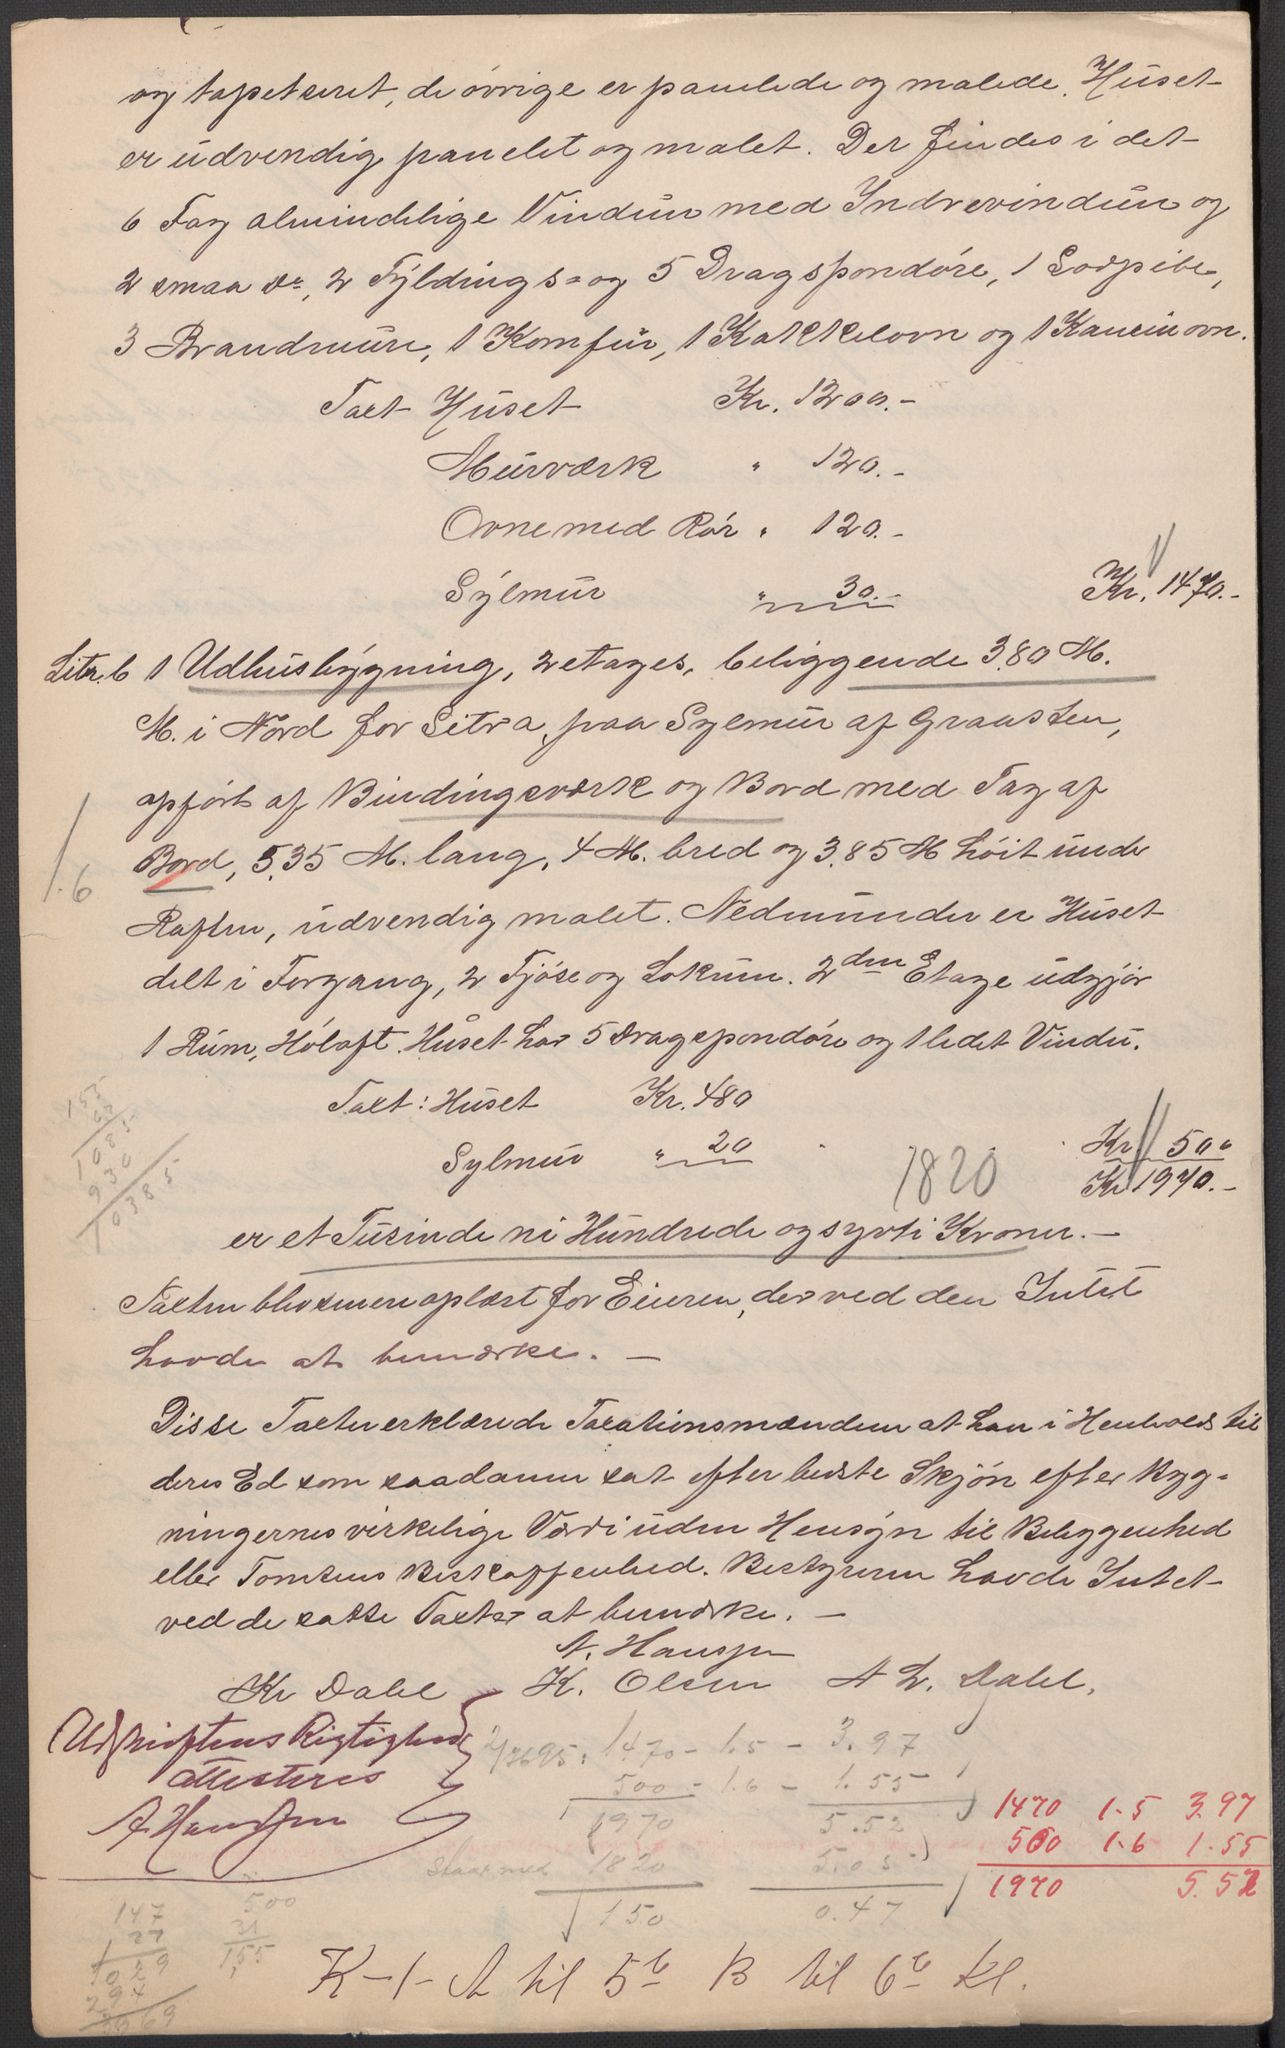 og tapetseret, de övrige er panelede og malede. Huset
er udvendig panelet og malet. Der findes i det
6 Fag almindelige Vinduer med Indrevinduer og
2 smaa do, 2 Fyldings- og 5 Dragspondöre, 1 Lodpibe,
3 Brandmure, 1 Komfür, 1 Kakkelovn og 1 Kaminovn.
Taxt Huset Kr. 1200.-
Murværk " 120.-
Ovne med Rör " 120.-
Sylmur " 30.- Kr. 1470.-
Litr. b 1 Udhusbygning, 2 etages, beliggende 3.80 M.
M. i Nord for Litr a, paa Sylmur af Graasten,
opfört af Bindingsværk og Bord med Tag af
Bord, 5.35 M. lang, 4 M. bred og 3.85 M höit under
1.6
Raften, udvendig malet. Nedenunder er Huset
delt i Forgang, 2 Fjöse og Lokum. 2den Etage udgjör
1 Rum, Höloft. Huset har 5 Dragspondöre og 1 lidet Vindu.
Taxt: Huset Kr. 480
Sylmur " 20 Kr. 500
1820 Kr 1970.-
155
67
1085
930
10385
er et Tusinde ni Hundrede og sytti Kroner.-
Taxten blev senere oplæst for Eieren, der ved den Intet
havde at bemærke. -
Disse Taxter erklærede Taxationsmændene at have i Henhold til
deres Ed som saadanne sat efter bedste Skjön efter Byg-
ningernes virkelige Værdi uden Hensyn til Beliggenhed
eller Tomtens Beskaffenhed. Bestyreren havde Intet
ved de satte Taxter at bemærke. -
A. Hanssen
Kr Dahl K. Olsen A L. Dahl.
Udskriftens Rigtighed
attesteres
A. Hanssen
2/3695: 1470 - 1.5 - 3.97
500 - 1.6 - 1.55
1970 5.52
Staar med 1820 5.05
150 0.47
1470 1.5 3.97
500 1.6 1.55
1970 5.52
147
27
1029
294
3969
500
31
1,55
K-1- A til 5te B til 6te kl.